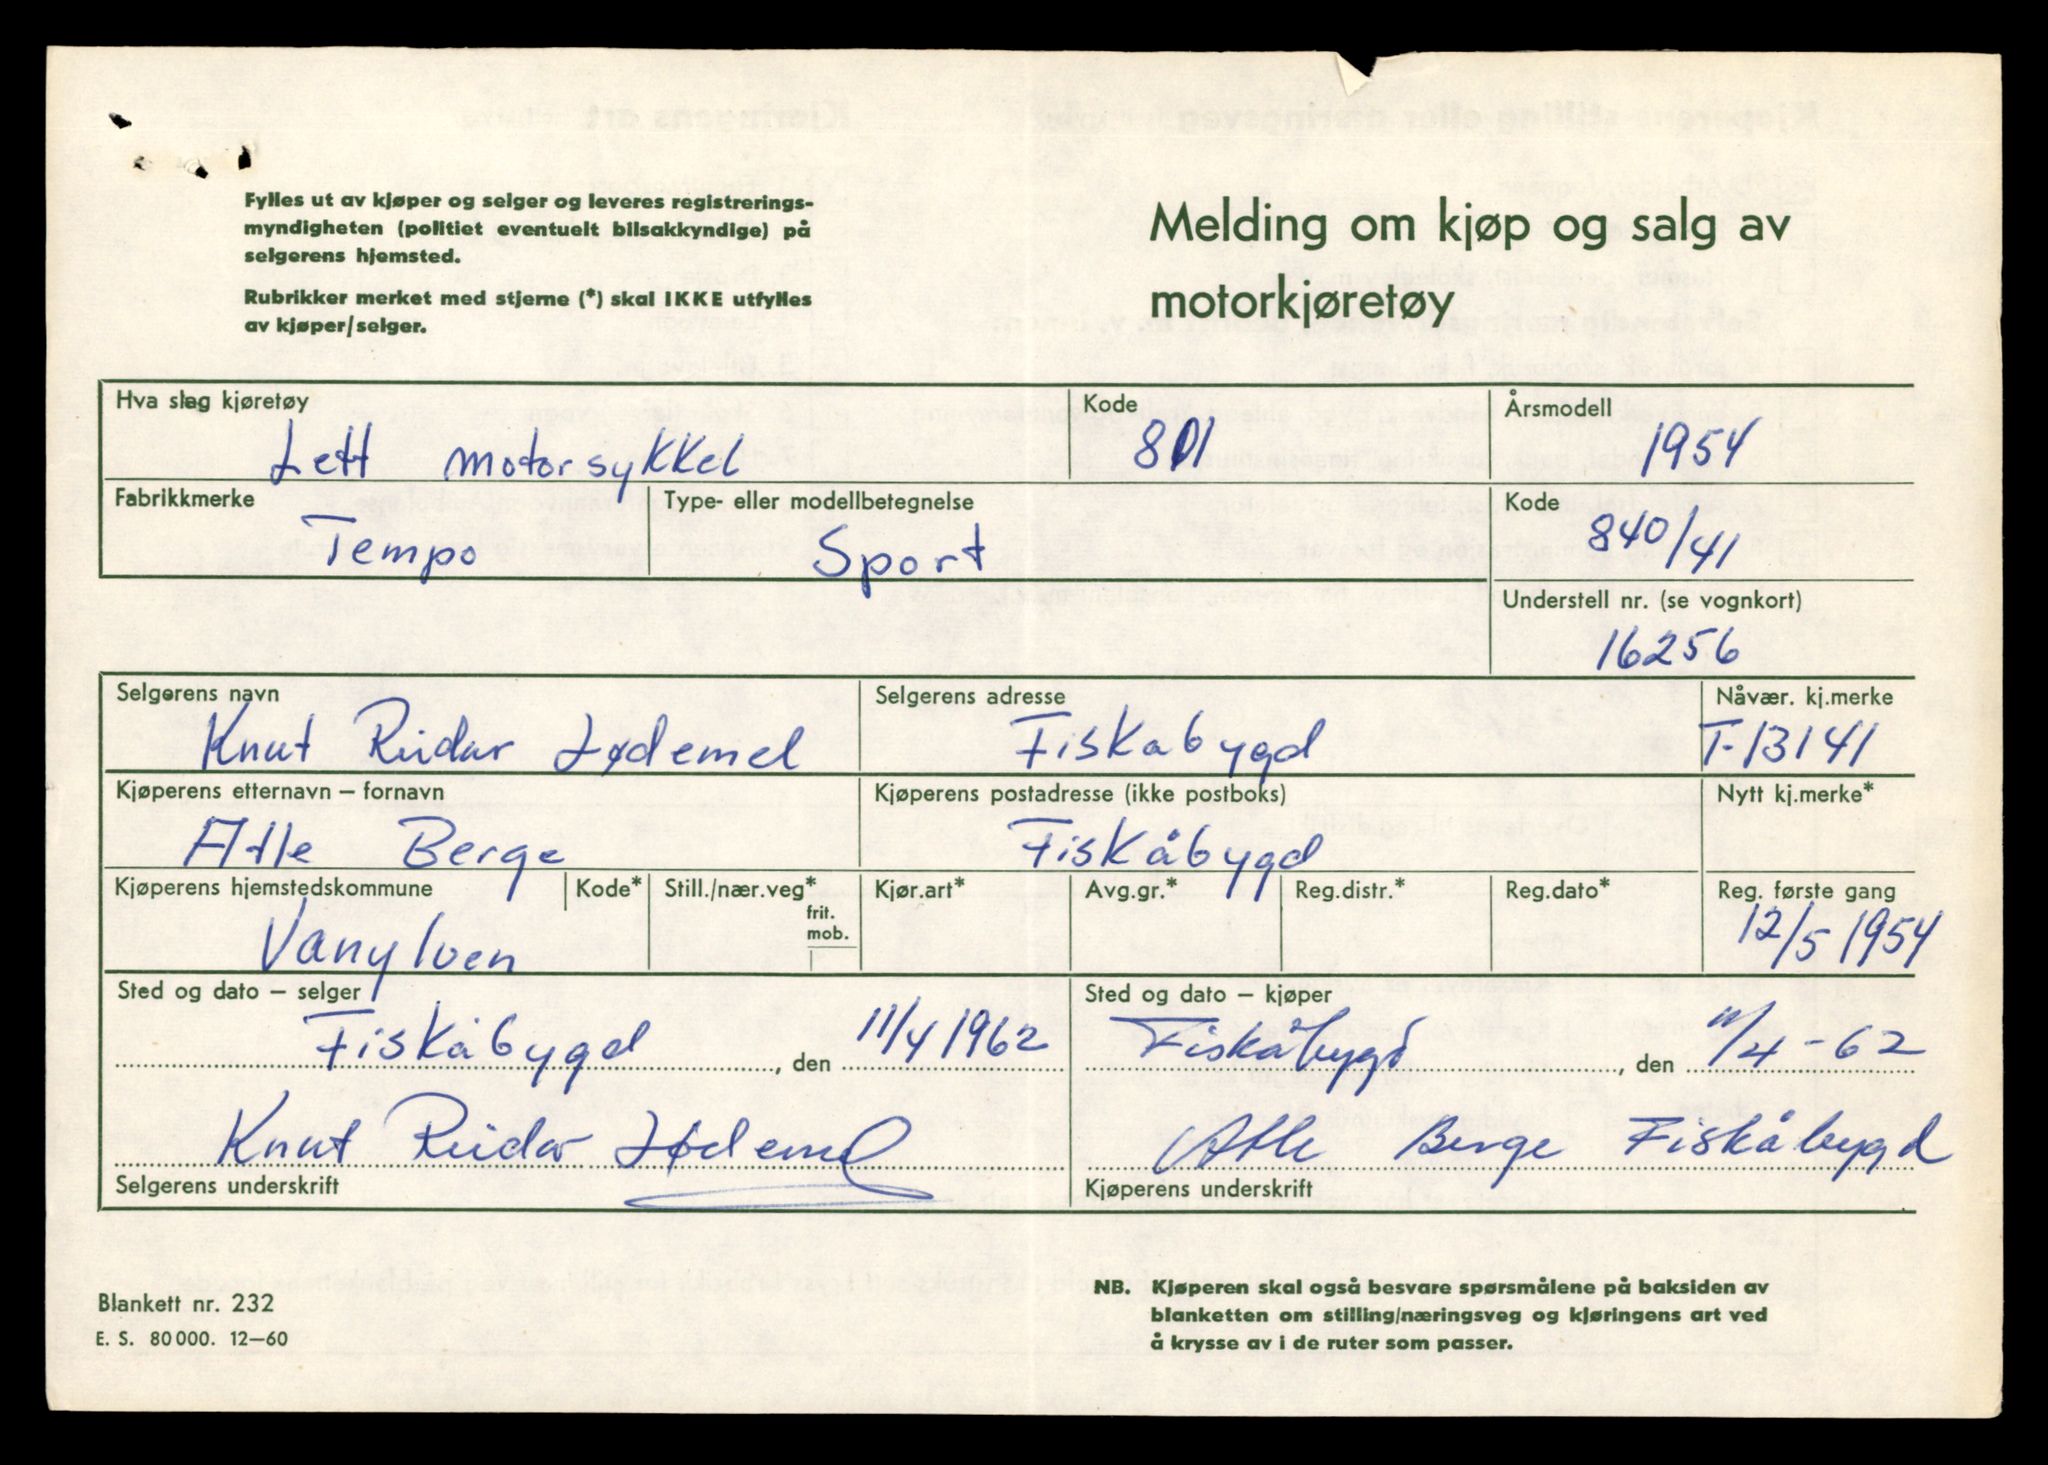 Fylles ut av kjøper og selger og leveres registrerings-
myndigheten (politiet eventuelt bilsakkyndige) på
selgerens hjemsted.
Rubrikker merket med stjerne (*) skal IKKE utfylles
av kjøper/selger.
Melding om kjøp og salg av
motorkjøretøy
Hva slag kjøretøy
Lett motorsykkel
Kode
801
Årsmodell
1954
Fabrikkmerke
Tempo
Type- eller modellbetegnelse
Sport
Kode
840/41
Understell nr. (se vognkort)
16256
Selgerens navn
Knut Reidar Lødemel
Selgerens adresse
Fiskåbygd
Nåvær. kj.merke
T-13141
Kjøperens etternavn – fornavn
Atle Berge
Kjøperens postadresse (ikke postboks)
Fiskåbygd
Nytt kj.merke*
Kjøperens hjemstedskommune
Vanylven
Kode*
Still./nær.veg*
frit.
mob.
Kjør.art*
Avg.gr.*
Reg.distr.*
Reg.dato*
Reg. første gang
12/5 1954
Sted og dato – selger
Fiskåbygd, den 11/4 1962
Sted og dato – kjøper
Fiskåbygd, den 11/4-62
Knut Reidar Lødemel
Selgerens underskrift
Atle Berge Fiskåbygd
Kjøperens underskrift
Blankett nr. 232
E. S. 80000. 12–60
NB. Kjøperen skal også besvare spørsmålene på baksiden av
blanketten om stilling/næringsveg og kjøringens art ved
å krysse av i de ruter som passer.